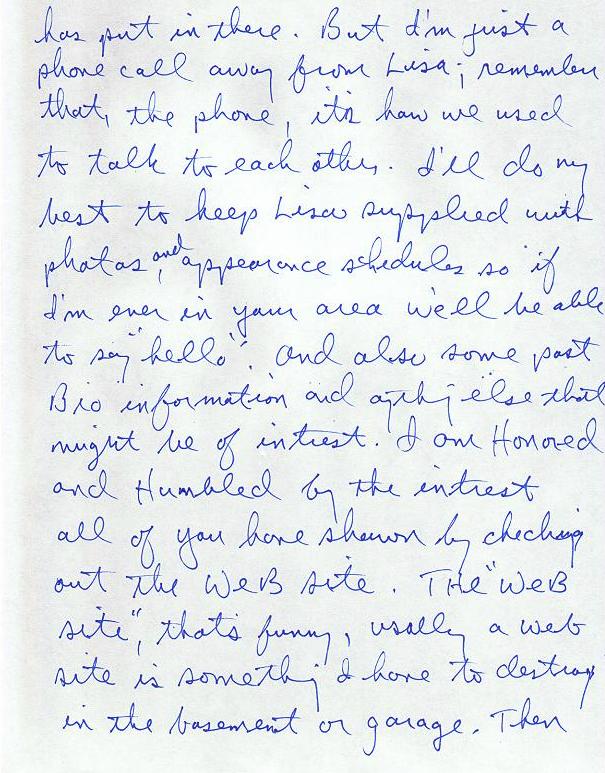 has put in there. But I'm just a
phone call away from Lisa; remember
that, the phone, it's how we used
to talk to each other. I'll do my
best to keep Lisa supplied with
photos, and appearance schedules so if
I'm ever in your area we'll be able
to say "hello". And also some past
Bio information and anything else that
might be of intrest. I am Honored
and Humbled by the intrest
all of you have shown by checking
out the WeB site. THE "WeB
site", that's funny, usally a web
site is something I have to destroy
in the basement or garage. Then